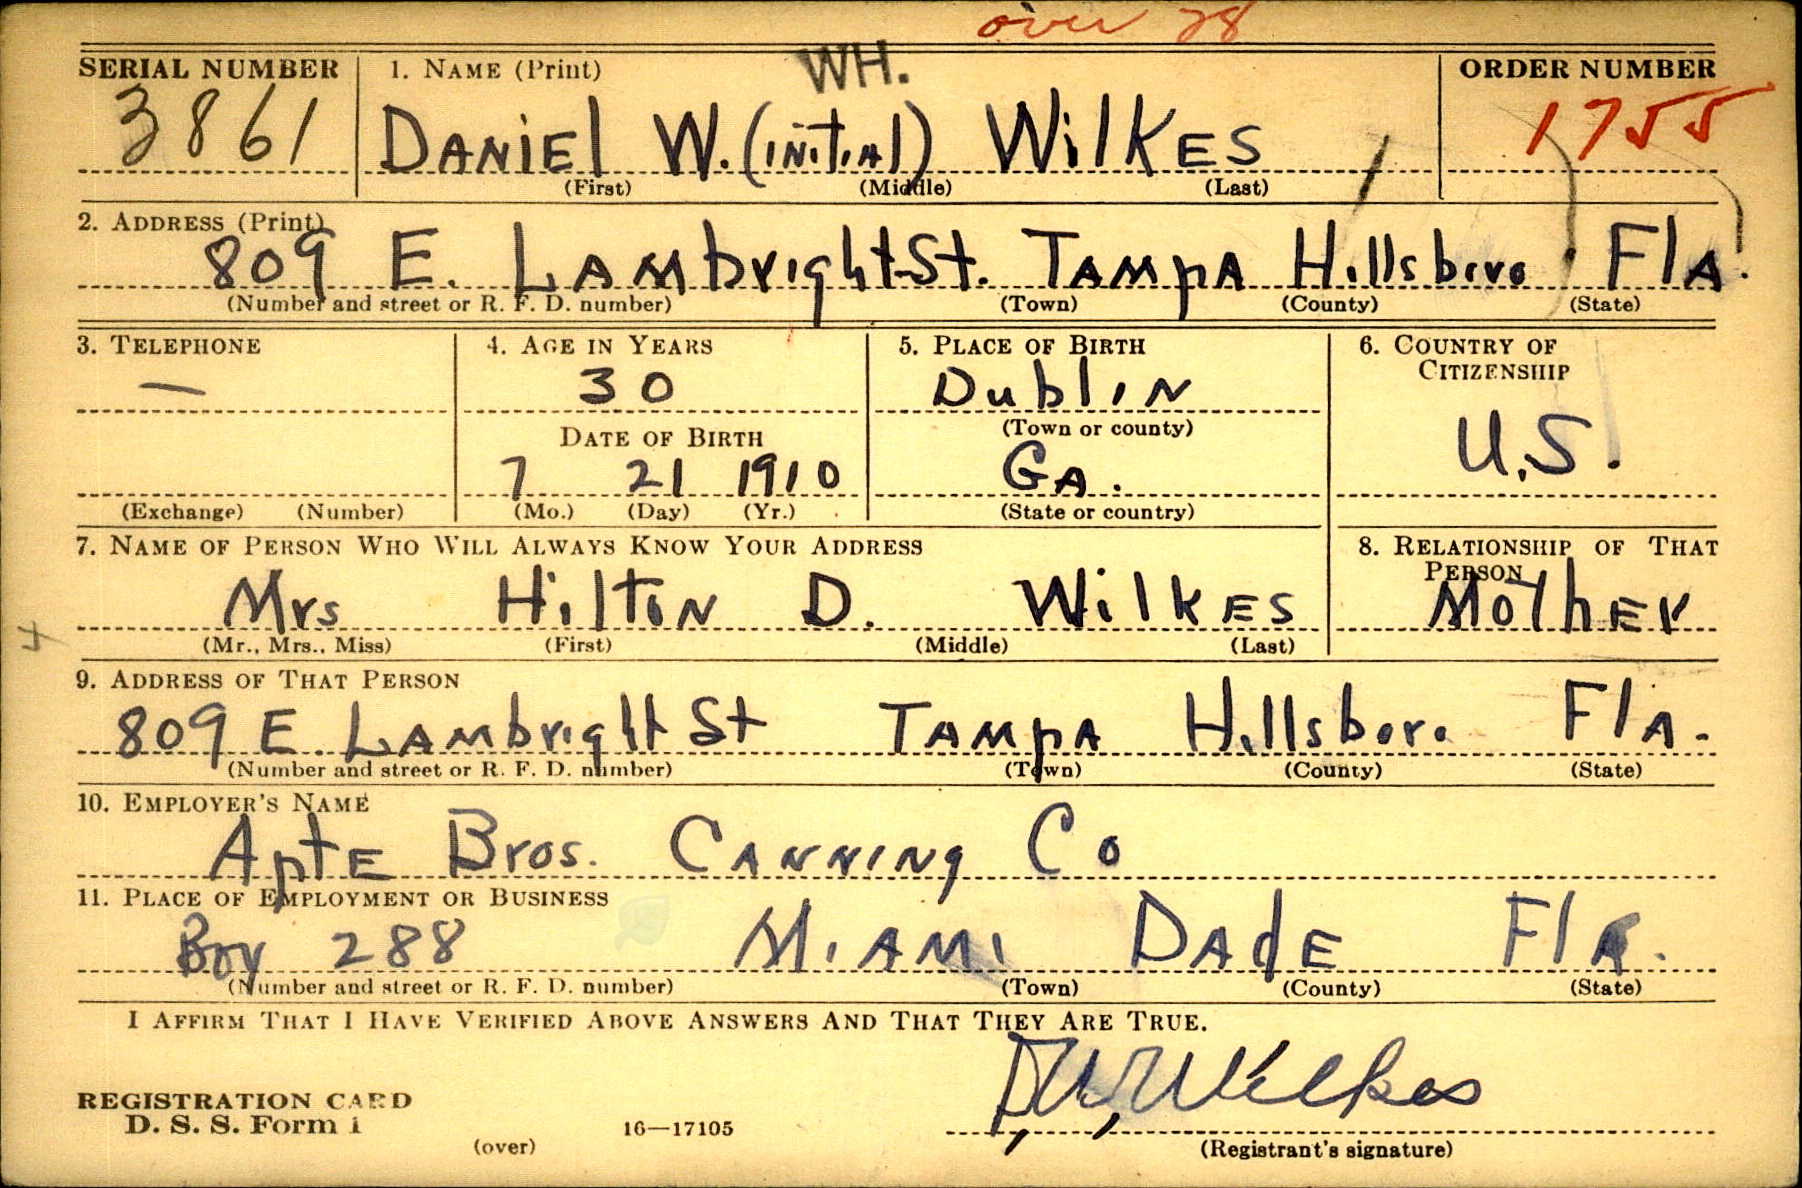 over 28
WH.
SERIAL NUMBER 1. NAME (Print) ORDER NUMBER
3861 DANiEl W. (iNiTiAl) WilKES 1755
(First) (Middle) (Last)
2. ADDRESS (Print)
809 E. LAMbrightSt. TAMpA Hillsboro FlA.
(Number and street or R. F. D. number) (Town) (County) (State)
3. TELEPHONE 4. AGE IN YEARS 5. PLACE OF BIRTH 6. COUNTRY OF CITIZENSHIP
— 30 DubliN
DATE OF BIRTH (Town or county) U.S.
7 21 1910 GA.
(Exchange) (Number) (Mo.) (Day) (Yr.) (State or country)
7. NAME OF PERSON WHO WILL ALWAYS KNOW YOUR ADDRESS 8. RELATIONSHIP OF THAT PERSON
Mrs HiltoN D. WilkES MothEr
(Mr., Mrs., Miss) (First) (Middle) (Last)
9. ADDRESS OF THAT PERSON
809 E. LAMbright St TAMpA Hillsboro FlA.
(Number and street or R. F. D. number) (Town) (County) (State)
10. EMPLOYER'S NAME
AptE Bros. CANNiNg Co
11. PLACE OF EMPLOYMENT OR BUSINESS
Box 288 MiAMi DAdE FlA.
(Number and street or R. F. D. number) (Town) (County) (State)
I AFFIRM THAT I HAVE VERIFIED ABOVE ANSWERS AND THAT THEY ARE TRUE.
D. W. Wilkes
REGISTRATION CARD
D. S. S. Form 1
(over) 16—17105 (Registrant's signature)